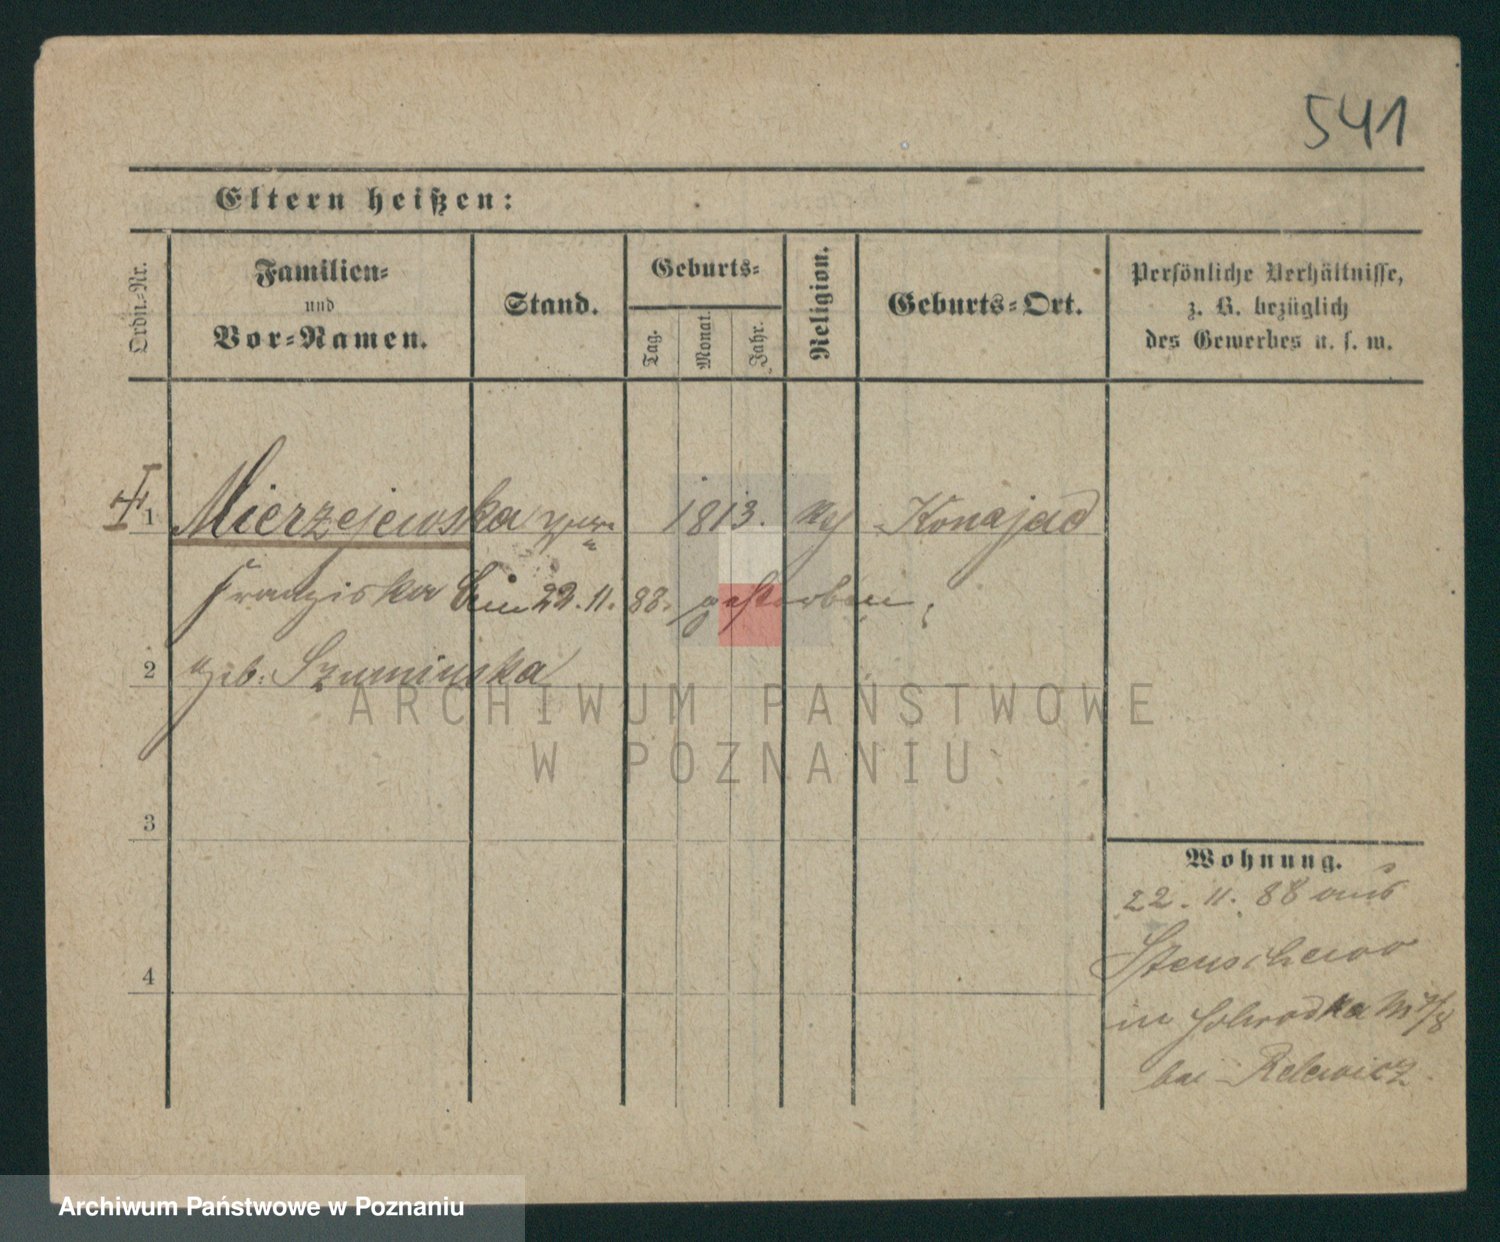 541
Eltern heißen:
Ordn.-Nr.
Familien-
und
Vor-Namen.
Stand.
Geburts-
Tag.
Monat.
Jahr.
Religion.
Geburts-Ort.
Persönliche Verhältnisse,
z. B. bezüglich
des Gewerbes u. s. w.
1 Mierzejewska 1813. Konajad
Franziska 22. 11. 88. gestorben
2 geb. Szuminska
ARCHIWUM PAŃSTWOWE
W POZNANIU
3
Wohnung.
22. 11. 88 aus
Stenschewo
4
in Schrodka
bei Relewicz
Archiwum Państwowe w Poznaniu